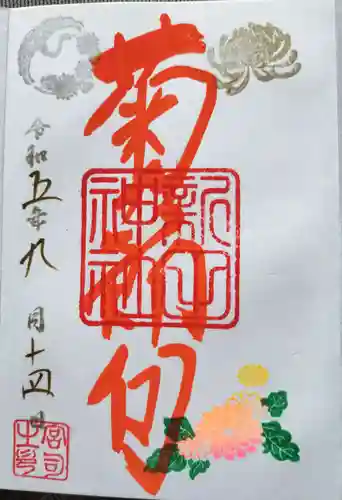 菊節句
新田神社
令和五年九月十四日
宮司之印